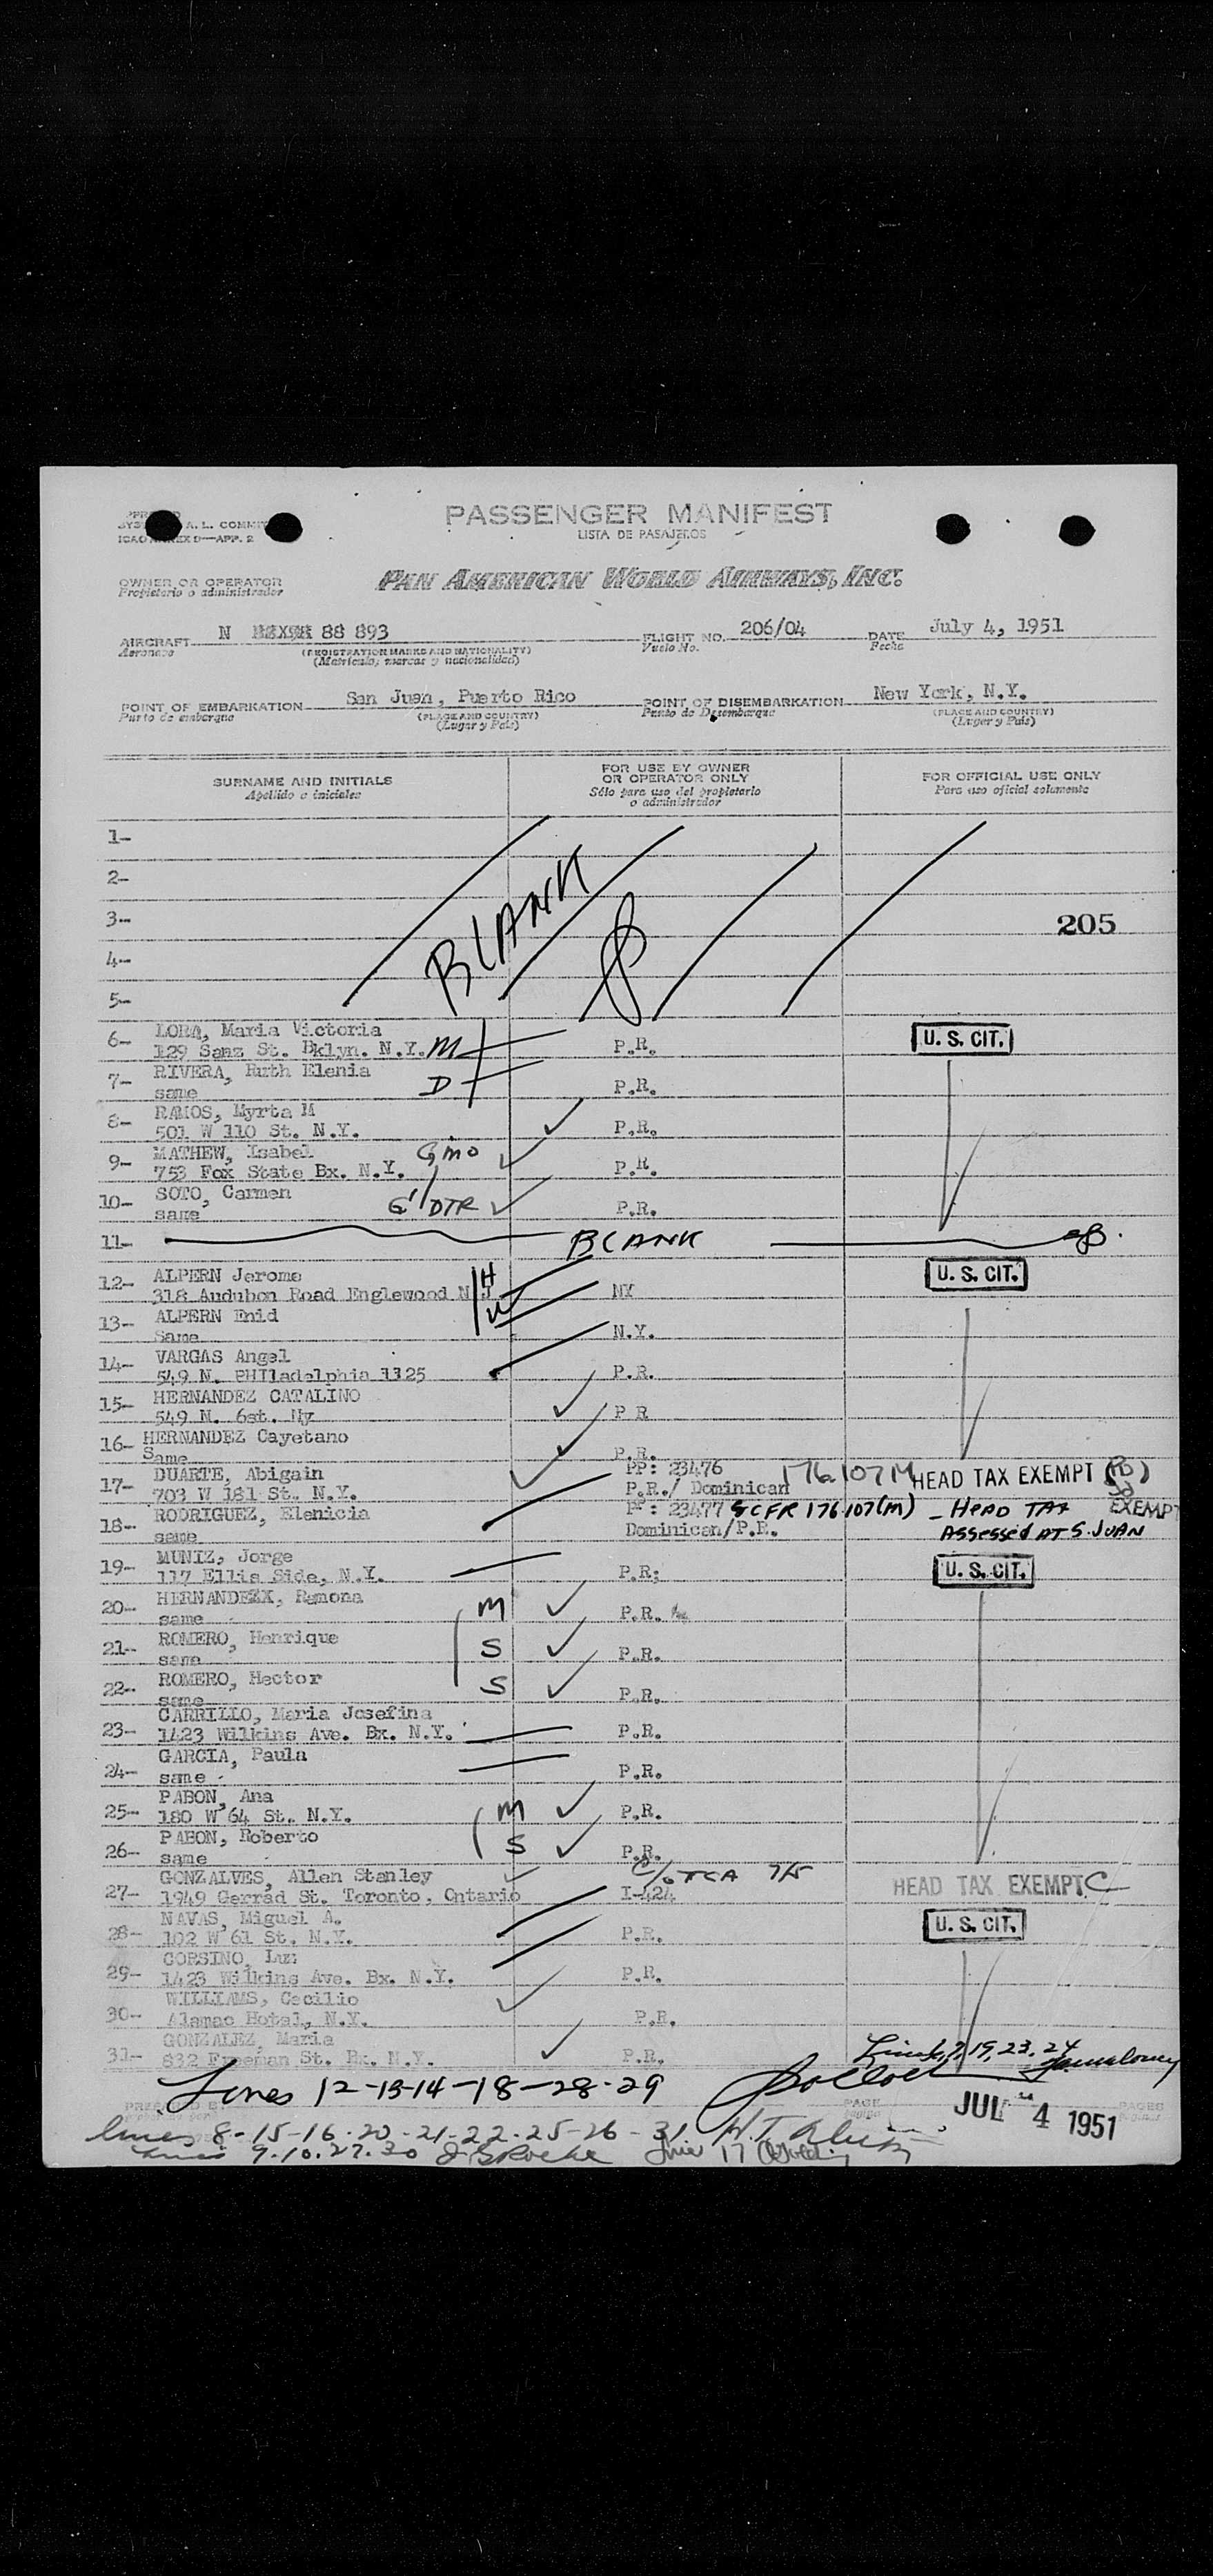 A. L.
ICAO ANNEX D—APP. 2
PASSENGER MANIFEST
LISTA DE PASAJEROS
OWNER OR OPERATOR
Propietario o administrador
PAN AMERICAN WORLD AIRWAYS, INC.
AIRCRAFT N 88 893
Aeronave
(REGISTRATION MARKS AND NATIONALITY)
(Matricula, marcas y nacionalidad)
FLIGHT NO. 206/04
Vuelo No.
DATE July 4, 1951
Fecha
POINT OF EMBARKATION San Juan, Puerto Rico
Punto de embarque
(PLACE AND COUNTRY)
(Lugar y País)
POINT OF DISEMBARKATION New York, N.Y.
Punto de Desembarque
(PLACE AND COUNTRY)
(Lugar y País)
SURNAME AND INITIALS
Apellido e iniciales
FOR USE BY OWNER
OR OPERATOR ONLY
Sólo para uso del propietario
o administrador
FOR OFFICIAL USE ONLY
Para uso oficial solamente
1-
2-
3-
4-
5-
BLANK
205
6- LORA, Maria Victoria
129 Sanz St. Bklyn. N.Y. M P.R. U. S. CIT.
7- RIVERA, Ruth Elenia
same D P.R.
8- RAMOS, Myrta M
501 W 110 St. N.Y. P.R.
9- MATHEW, Isabel GMO
753 Fox State Bx. N.Y. P.R.
10- SOTO, Carmen
same G'DTR P.R.
11- BLANK
12- ALPERN Jerome H U. S. CIT.
318 Audubon Road Englewood N.J. W NY
13- ALPERN Enid
Same N.Y.
14- VARGAS Angel
549 N. PHIladelphia 1325 P.R.
15- HERNANDEZ CATALINO
549 N. 6st. Ny P R
16- HERNANDEZ Cayetano
Same P.R.
17- DUARTE, Abigain PP: 23476 176.107M HEAD TAX EXEMPT
703 W 181 St. N.Y. P.R./ Dominican
18- RODRIGUEZ, Elenicia PP: 23477 8CFR 176.107(M) - HEAD TAX EXEMPT
same Dominican/P.R. ASSESSED AT S. JUAN
19- MUNIZ, Jorge
117 Ellis Side, N.Y. P.R; U. S. CIT.
20- HERNANDEZX, Ramona M
same P.R.
21- ROMERO, Henrique S
same P.R.
22- ROMERO, Hector S
same P.R.
23- CARRILLO, Maria Josefina
1423 Wilkins Ave. Bx. N.Y. P.R.
24- GARCIA, Paula
same P.R.
25- PABON, Ana M
180 W 64 St. N.Y. P.R.
26- PABON, Roberto S
same P.R.
27- GONZALVES, Allen Stanley C/o TCA 7/5
1949 Gerrad St. Toronto, Ontario I-424 HEAD TAX EXEMPT C
28- NAVAS, Miguel A.
102 W 61 St. N.Y. P.R. U. S. CIT.
29- CORSINO, Luz
1423 Wilkins Ave. Bx. N.Y. P.R.
30- WILLIAMS, Cecilio
Alamac Hotel, N.Y. P.R.
31- GONZALEZ, Maria
832 Freeman St. Bx. N.Y. P.R.
Lines 6, 7, 19, 23, 24
Lines 12-13-14-18-28-29
PAGE
PAGES
JUL 4 1951
lines 8-15-16-20-21-22-25-26-31
Lines 9.10.27.30 Line 17